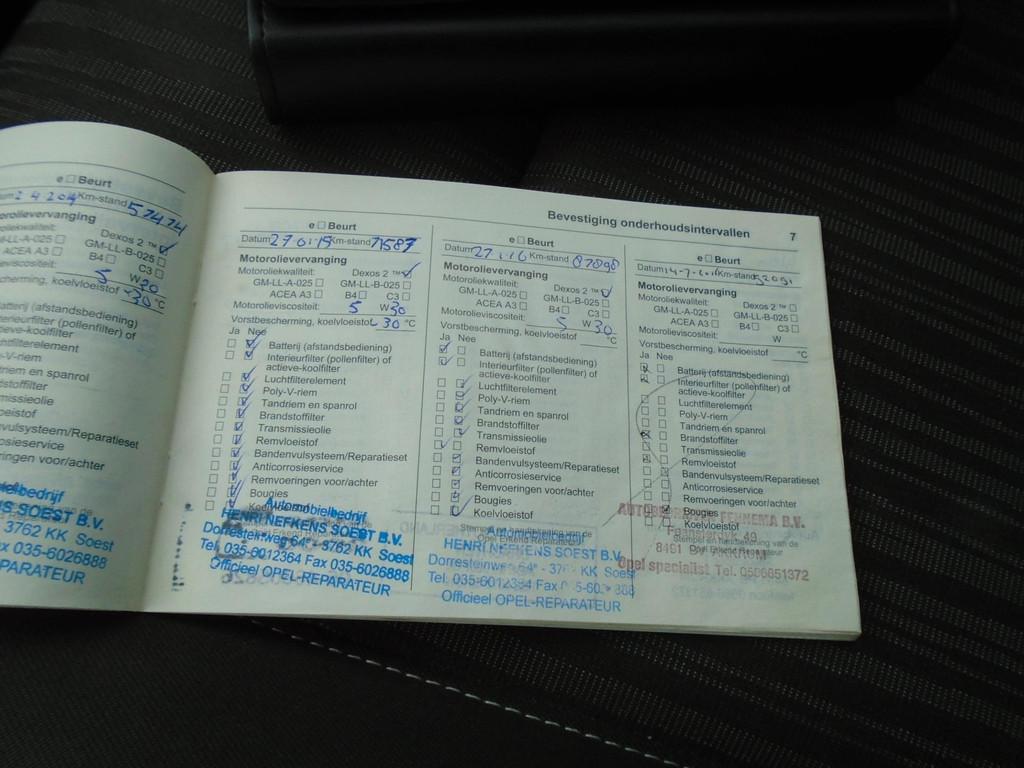 e □ Beurt
2 4 2014 Km-stand 57474
Dexos 2 ™ ☑
GM-LL-A-025 □ GM-LL-B-025 □
ACEA A3 □ B4 □ C3 □
5 W 30
koelvloeistof -30 °C
(afstandsbediening)
(pollenfilter) of
Poly-V-riem
en spanrol
Automobielbedrijf
HENRI NEFKENS SOEST B.V.
3762 KK Soest
Fax 035-6026888
OPEL-REPARATEUR
Bevestiging onderhoudsintervallen 7
e □ Beurt
Datum 27 01 15 Km-stand 71587
Motorolievervanging
Motoroliekwaliteit: Dexos 2 ™ ☑
GM-LL-A-025 □ GM-LL-B-025 □
ACEA A3 □ B4 □ C3 □
Motorolieviscositeit: 5 W 30
Vorstbescherming, koelvloeistof - 30 °C
Ja Nee
Batterij (afstandsbediening)
Interieurfilter (pollenfilter) of
actieve-koolfilter
Luchtfilterelement
Poly-V-riem
Tandriem en spanrol
Brandstoffilter
Transmissieolie
Remvloeistof
Bandenvulsysteem/Reparatieset
Anticorrosieservice
Remvoeringen voor/achter
Bougies
Koelvloeistof
Automobielbedrijf
HENRI NEFKENS SOEST B.V.
Dorresteinweg 64ᵃ - 3762 KK Soest
Tel. 035-6012364 Fax 035-6026888
Officieel OPEL-REPARATEUR
e □ Beurt
Datum 27 1 16 Km-stand 87098
Motorolievervanging
Motoroliekwaliteit: Dexos 2 ™ ☑
GM-LL-A-025 □ GM-LL-B-025 □
ACEA A3 □ B4 □ C3 □
Motorolieviscositeit: 5 W 30
Vorstbescherming, koelvloeistof °C
Ja Nee
Batterij (afstandsbediening)
Interieurfilter (pollenfilter) of
actieve-koolfilter
Luchtfilterelement
Poly-V-riem
Tandriem en spanrol
Brandstoffilter
Transmissieolie
Remvloeistof
Bandenvulsysteem/Reparatieset
Anticorrosieservice
Remvoeringen voor/achter
Bougies
Koelvloeistof
Stempel en handtekening van de
Opel Erkend Reparateur
Automobielbedrijf
HENRI NEFKENS SOEST B.V.
Dorresteinweg 64ᵃ - 37 KK Soest
Tel. 035-6012364 Fax
Officieel OPEL-REPARATEUR
e □ Beurt
Datum 14-7- Km-stand
Motorolievervanging
Motoroliekwaliteit: Dexos 2 ™ □
GM-LL-A-025 □ GM-LL-B-025 □
ACEA A3 □ B4 □ C3 □
Motorolieviscositeit: W
Vorstbescherming, koelvloeistof °C
Ja Nee
Batterij (afstandsbediening)
Interieurfilter (pollenfilter) of
actieve-koolfilter
Luchtfilterelement
Poly-V-riem
Tandriem en spanrol
Brandstoffilter
Transmissieolie
Remvloeistof
Bandenvulsysteem/Reparatieset
Anticorrosieservice
Remvoeringen voor/achter
Bougies
Koelvloeistof
Stempel en handtekening van de
Opel Erkend Reparateur
B.V.
49
8491 AKKRUM
Opel specialist Tel. 0566651372